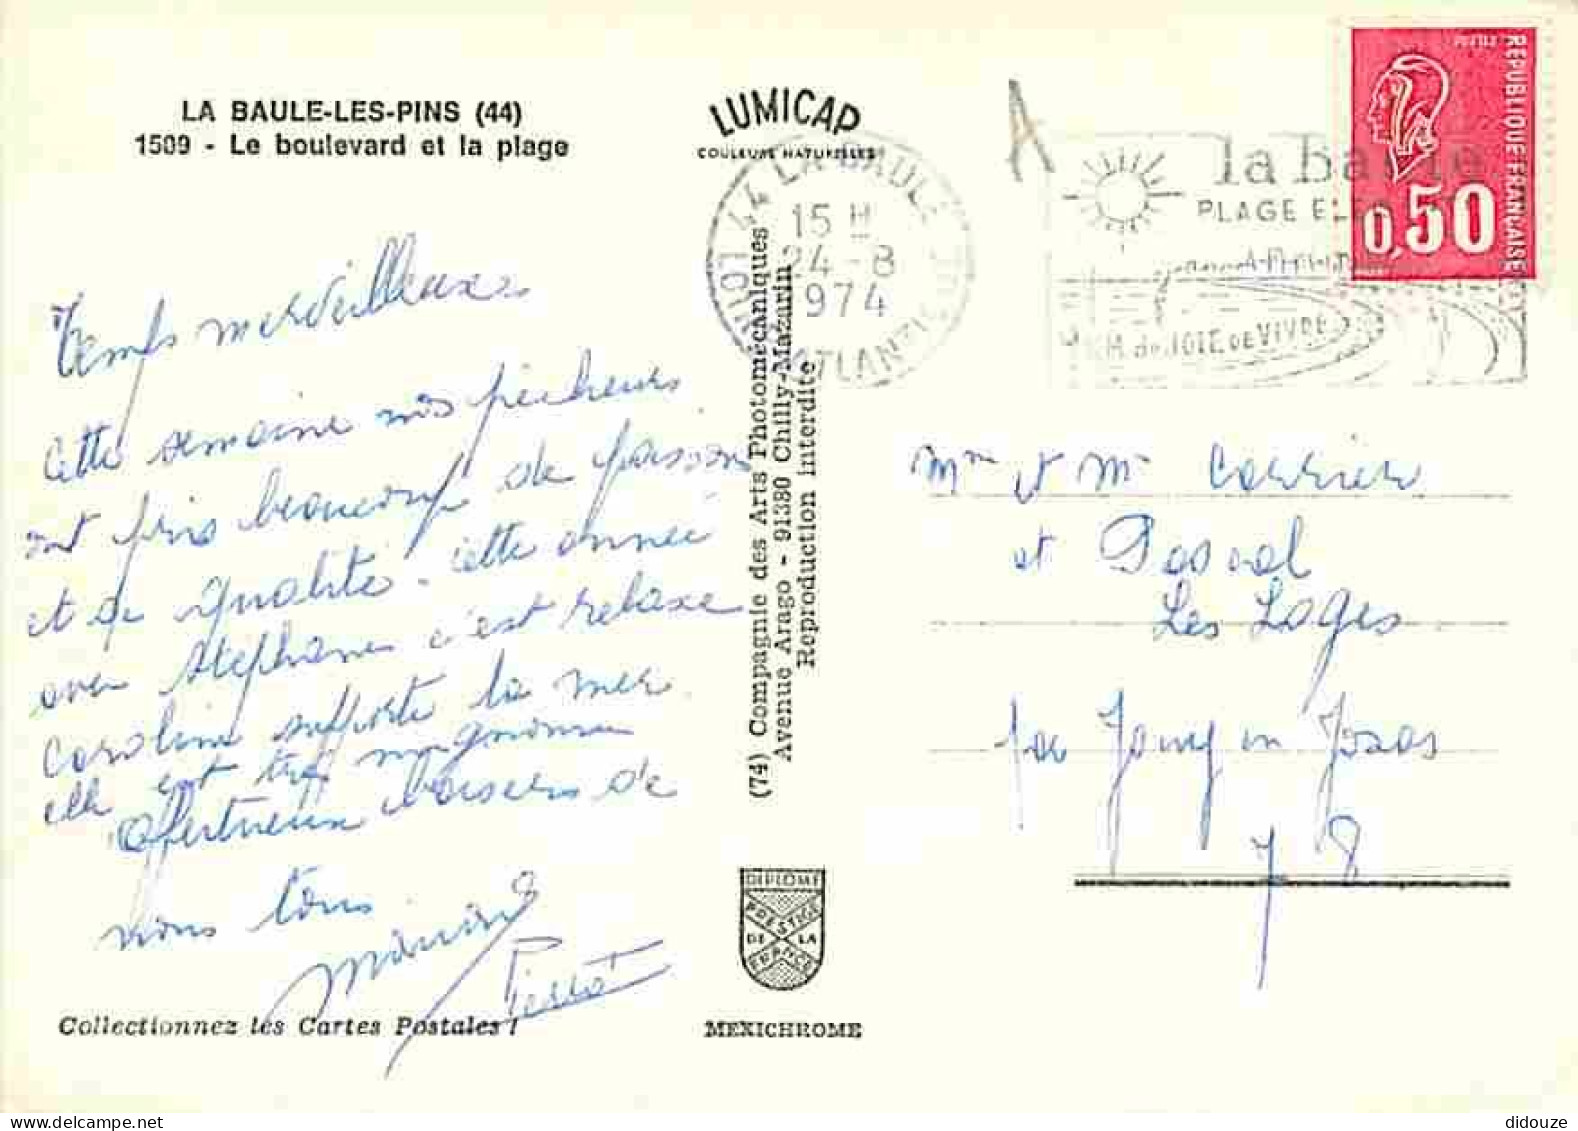 LA BAULE-LES-PINS (44)
1509 - Le boulevard et la plage
LUMICAP
COULEURS NATURELLES
44 LA BAULE
15 H
24 - 8
1974
LOIRE ATLANTIQUE
la Baule
PLAGE
KM de JOIE DE VIVRE
POSTES
REPUBLIQUE FRANÇAISE
0,50
Temps merveilleux
Cette semaine nos pêcheurs
ont pris beaucoup de poisson
et de qualité - cette année
avec Stephane c'est relaxe
Caroline supporte la mer
elle est très mignonne
Affectueux baisers de
nous tous
(74) Compagnie des Arts Photomécaniques
Avenue Arago - 91380 Chilly-Mazarin
Reproduction interdite
Mme et Mr Carrier
et Pascal
Les Loges
par Jouy en Josas
78
DIPLOME
PRESTIGE
DE LA
FRANCE
Collectionnez les Cartes Postales !
MEXICHROME
didouze